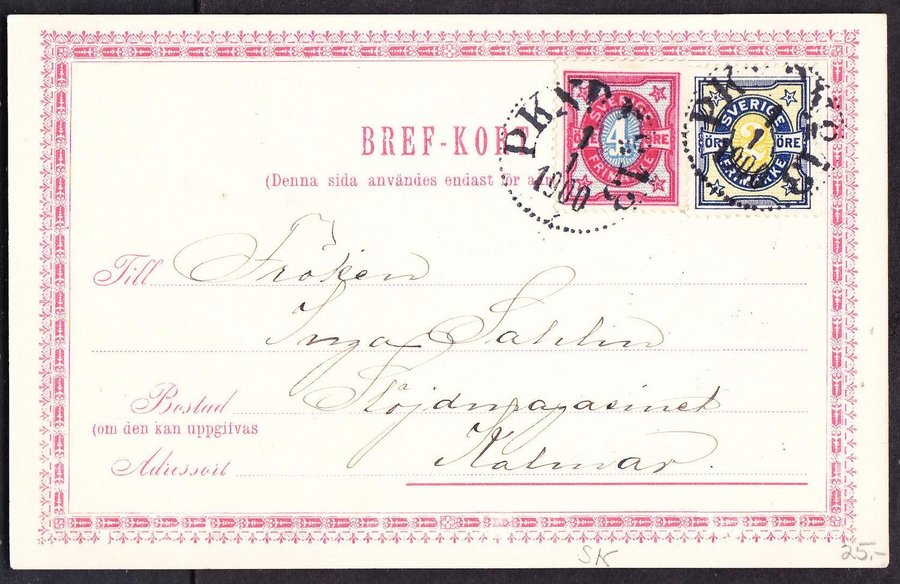 BREF-KOR
(Denna sida användes endast för a
SVERIGE
ÖRE 4 ÖRE
FRIMÄRKE
SVERIGE
ÖRE 2 ÖRE
FRIMÄRKE
PKXP
1
1
1900
PKXP
1
1900
Till Fröken
Inga Sahlin
Bostad Slöjdmagasinet
(om den kan uppgifvas
Adressort Kalmar.
SK
25.-